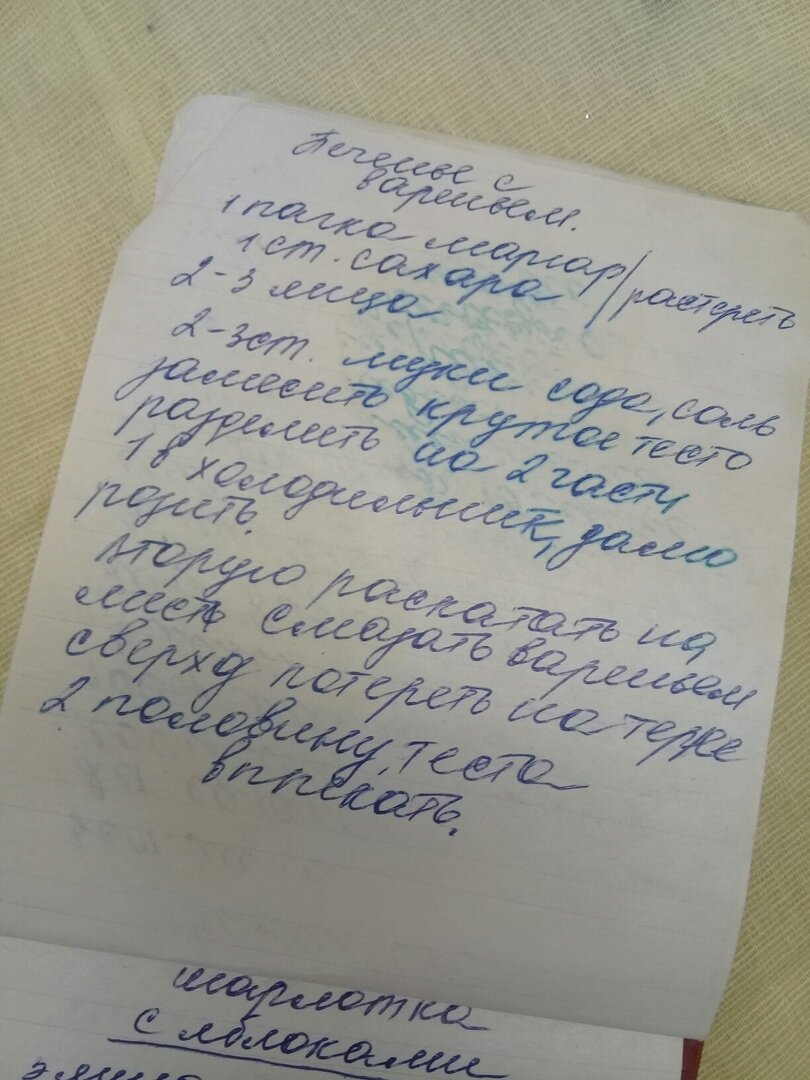 Печенье с
вареньем.
1 пачка маргар / растереть
1 ст. сахара
2-3 яйца
2-3 ст. муки сода, соль
замесить крутое тесто
разделить на 2 части
1 в холодильник,
вторую раскатать на
лист смазать вареньем
сверху потереть на терке
2 половину теста
шарлотка
с яблоками